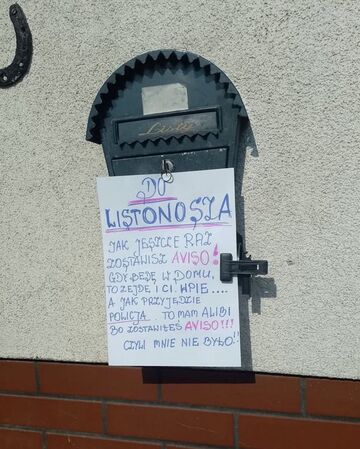 Listy
DO
LISTONOSZA
JAK JESZCZE RAZ
ZOSTAWISZ AVISO!
GDY BĘDĘ W DOMU,
TO ZEJDĘ I CI WPIE....
A JAK PRZYJEDZIE
POLICJA. TO MAM ALIBI
BO ZOSTAWIŁEŚ AVISO!!!
CZYLI MNIE NIE BYŁO!!